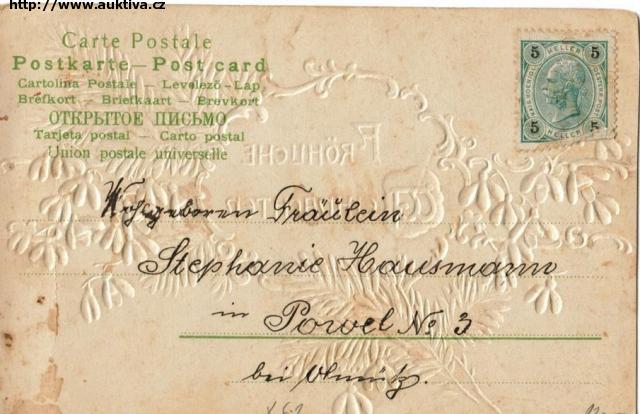 http://www.auktiva.cz
Carte Postale
Postkarte – Post card
Cartolina Postale – Levelező-Lap
Brefkort – Briefkaart – Brevkort
ОТКРЫТОЕ ПИСЬМО
Tarjeta postal – Carto postal
Union postale universelle
5 HELLER 5
5 HELLER 5
FRÖHLICHE
Wohlgeboren Fräulein
Stephanie Hausmann
in Powel No 3
bei Olmütz.